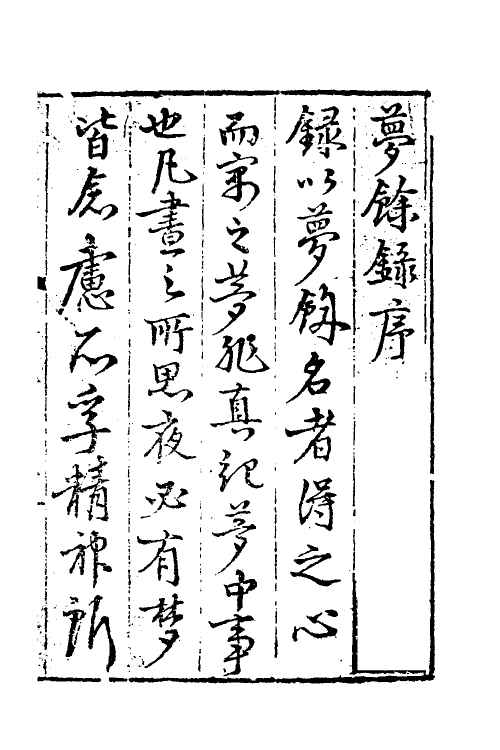 夢餘錄序
錄以夢餘名者得之心
而寓之夢非真記夢中事
也凡晝之所思夜必有梦
皆念慮所孚精神所